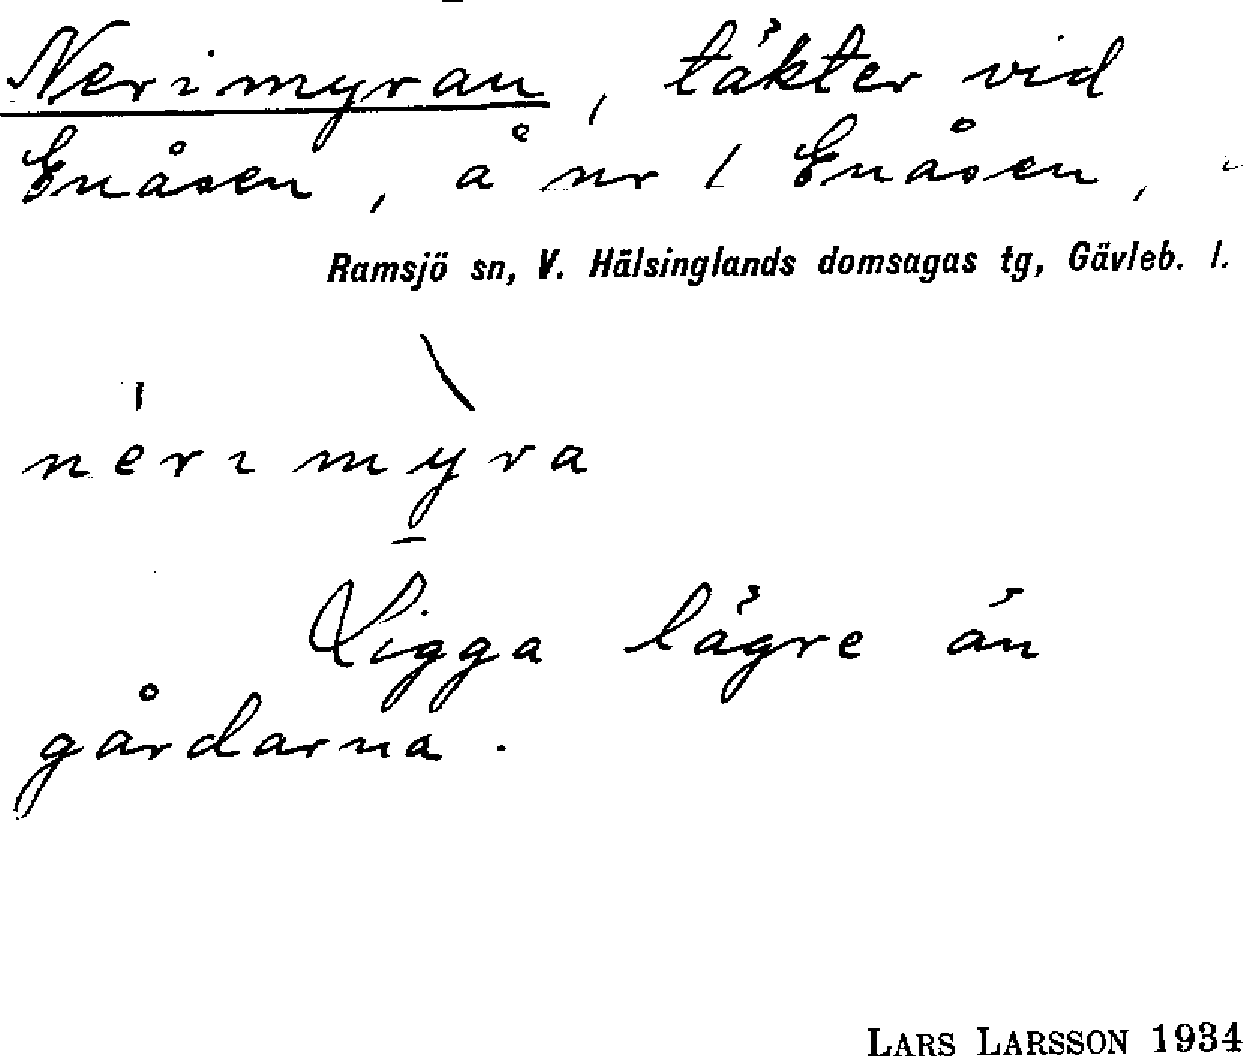 Nerimyran, täkter vid
Enåsen, å nr 1 Enåsen,
Ramsjö sn, V. Hälsinglands domsagas tg, Gävleb. l.
nerimyra
Ligga lägre än
gårdarna.
LARS LARSSON 1934